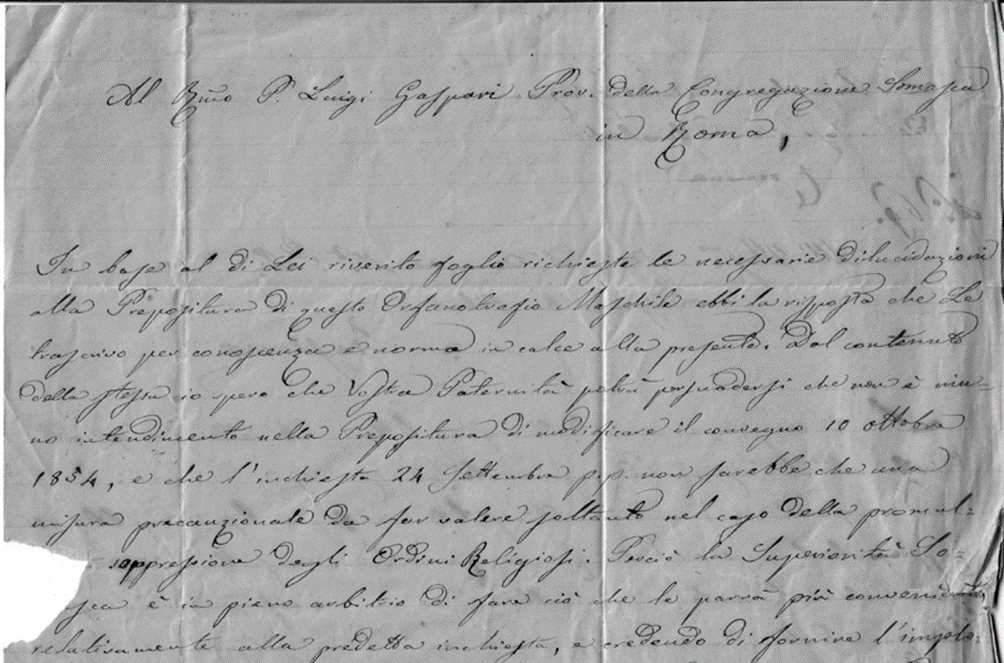 Al Rmo P. Luigi Gaspari Prov. della Congregazione Somasca
in Roma,
In base al di Lei riverito foglio richieste le necessarie dilucidazioni
alla Prepositura di questo Orfanotrofio Maschile ebbi la risposta che Le
trascrivo per conoscenza e norma in calce alla presente. Dal contenuto
della stessa io spero che Vostra Paternità potrà persuadersi che non è niu=
no intendimento nella Prepositura di modificare il convegno 10 Ottobre
1854, e che l'inchiesta 24 Settembre p.p. non sarebbe che una
misura precauzionale da far valere soltanto nel caso della promul=
soppressione degli Ordini Religiosi. Perciò la Superiorità So=
sca è in pieno arbitrio di fare ciò che le parrà più conveniente
relativamente alla predetta inchiesta, e credendo di fornire l'imolo: